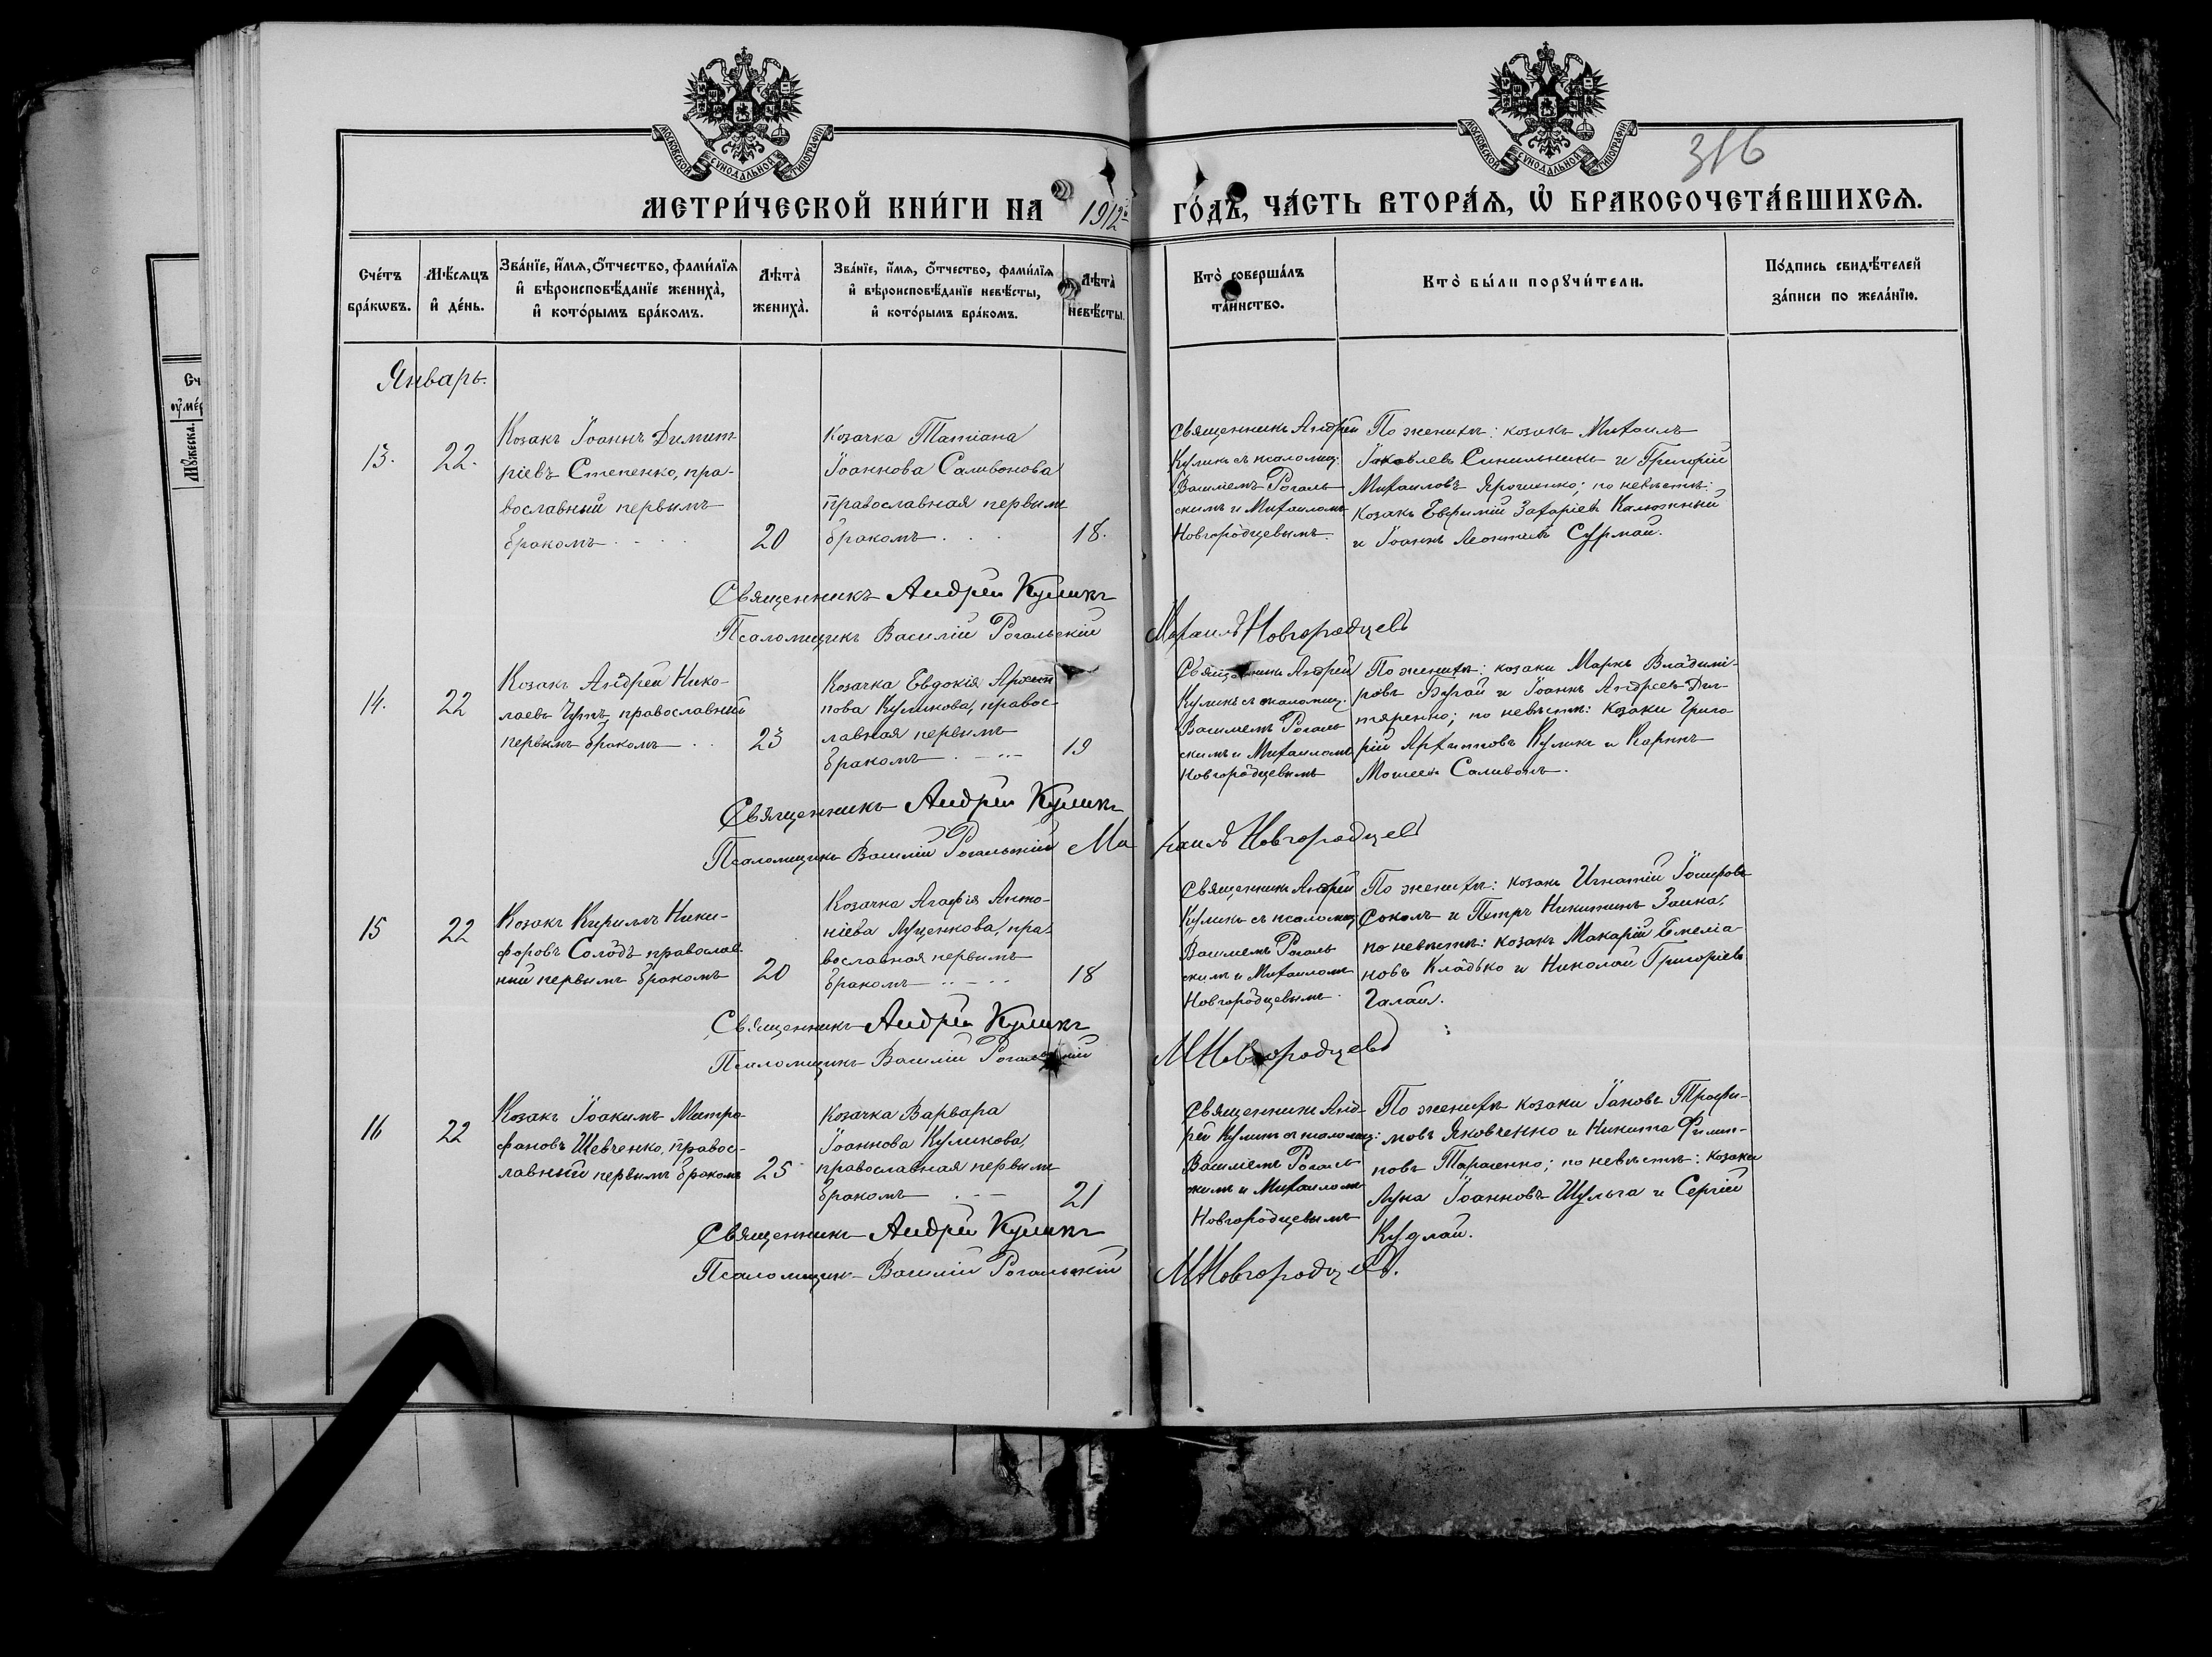 МОСКОВСКОЙ СѴНОДАЛЬНОЙ ТИПОГРАФІИ
МОСКОВСКОЙ СѴНОДАЛЬНОЙ ТИПОГРАФІИ
316
МЕТРИ́ЧЕСКОЙ КНИ́ГИ НА 1912й ГО́ДЪ, ЧА́СТЬ ВТОРА́Ѧ, Ѡ҆ БРАКОСОЧЕТА́ВШИХСѦ.
Сче́тъ
бра́кѡвъ.
Мѣ́сѧцъ
и҆ де́нь.
Зва́нїе, и҆́мѧ, ѻ҆́тчество, фами́лїѧ
и҆ вѣроисповѣ́данїе жениха̀,
и҆ кото́рымъ бра́комъ.
Лѣта̀
жениха̀.
Зва́нїе, и҆́мѧ, ѻ҆́тчество, фами́лїѧ
и҆ вѣроисповѣ́данїе невѣ́сты,
и҆ кото́рымъ бра́комъ.
Лѣта̀
невѣ́сты.
Кто̀ соверша́лъ
та́инство.
Кто̀ бы́ли порꙋчи́тели.
По́дпись свидѣ́телей
за́писи по жела́нїю.
Сч
ᲂу҆ме́р
Мꙋ́жеска.
Январь.
13.
22.
Козакъ Іоаннъ Димит-
ріевъ Степенко, пра-
вославный первымъ
бракомъ
20
Козачка Татіана
Іоаннова Саливонова
православная первымъ
бракомъ
18.
Священникъ Андрей
Куликъ съ псаломщ:
Василіемъ Рогаль-
скимъ и Михаиломъ
Новгородцевымъ.
По женихѣ: козакъ Михаилъ
Іаковлевъ Синильникъ и Григорій
Михаиловъ Ярошенко; по невѣстѣ:
козакъ Евфимій Захаріевъ Калюжный
и Іоаннъ Леонтіевъ Сурмай.
Священникъ Андрей Куликъ
Псаломщикъ Василій Рогальскій
Михаилъ Новгородцевъ
14.
22
Козакъ Андрей Нико-
лаевъ православный
первымъ бракомъ
23
Козачка Евдокія Архип
пова Куликова, правос-
лавная первымъ
бракомъ
19
Священникъ Андрей
Куликъ съ псаломщ.
Василіемъ Рогаль
скимъ и Михаиломъ
Новгородцевымъ
По женихѣ: козаки Маркъ Владимі-
ровъ Бугай и Іоаннъ Андреевъ Дег-
тяренко; по невѣстѣ: козаки Григо-
рій Архипповъ Куликъ и Карпъ
Моисеевъ Саливонъ.
Священникъ Андрей Куликъ
Псаломщикъ Василій Рогальскій
Михаилъ Новгородцевъ
15
22
Козакъ Кириллъ Ники-
форовъ Солодъ православ-
ный первымъ бракомъ
20
Козачка Агафія Анто-
ніева Луценкова, пра-
вославная первымъ
бракомъ
18
Священникъ Андрей
Куликъ съ псаломщ
Василіемъ Рогаль
скимъ и Михаиломъ
Новгородцевымъ.
По женихѣ: козакъ Игнатій Іосифовъ
Соколъ и Петръ Никитинъ Заика,
по невѣстѣ: козакъ Макарій Емеліа-
новъ Кладько и Николай Григоріевъ
Галай.
Священникъ Андрей Куликъ
Псаломщикъ Василій Рогальскій
М Новгородцевъ
16
22
Козакъ Іоакимъ Митро-
фановъ Шевченко, правос-
лавный первымъ бракомъ
25
Козачка Варвара
Іоаннова Куликова,
православная первымъ
бракомъ
21
Священникъ Анд-
рей Куликъ съ псаломщ:
Василіемъ Рогаль
скимъ и Михаиломъ
Новгородцевымъ
По женихѣ козаки Іаковъ Трофи-
мовъ Яковченко и Никита Филип-
повъ Тарасенко; по невѣстѣ: козаки
Лука Іоанновъ Шульга и Сергій
Кудлай.
Священникъ Андрей Куликъ
Псаломщикъ Василій Рогальскій
М Новгородцевъ.